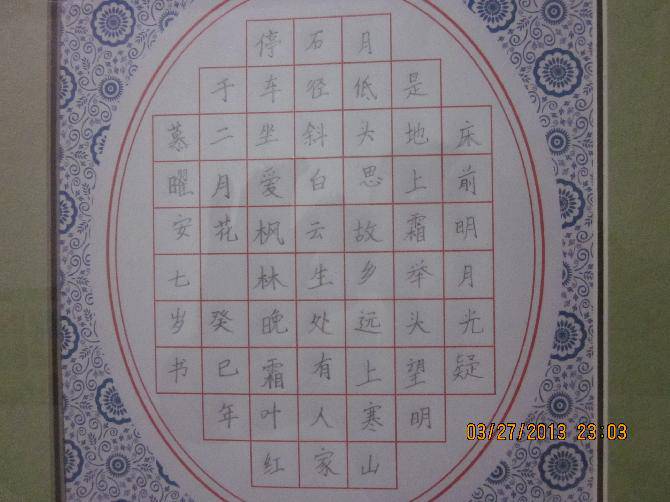 床前明月光疑
是地上霜举头望明
月低头思故乡远上寒山
石径斜白云生处有人家
停车坐爱枫林晚霜叶红
于二月花 癸巳年
慕曜安七岁书
03/27/2013 23:03